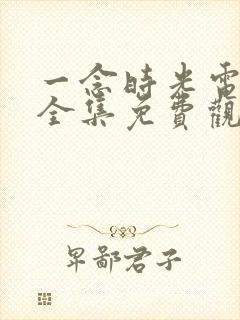 一念时光電
全集免費觀
卑鄙君子